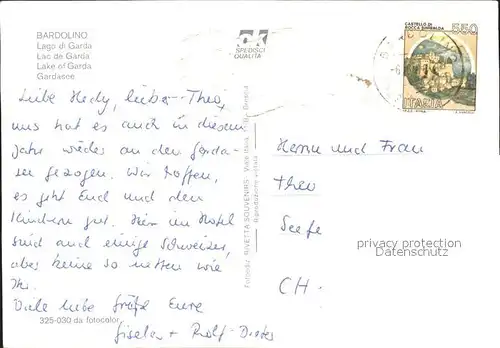 BARDOLINO
Lago di Garda
Lac de Garda
Lake of Garda
Gardasee
SPEDISCI
QUALITÀ
CASTELLO DI
ROCCA SINIBALDA
550
ITALIA
Liebe Hedy, lieber Theo,
uns hat es auch in diesem
Jahr wieder an den Garda-
see gezogen. Wir hoffen,
es geht Euch und den
Kindern gut. Hier im Hotel
sind auch einige Schweizer,
aber keine so netten wie
Ihr.
Viele liebe Grüße Eure
Gisela + Rolf-Dieter
Herrn und Frau
Theo
Seefe
CH-
privacy protection
Datenschutz
Fotoediz. RIVETTA SOUVENIRS - Viale
Riproduzione vietata
325-030 da fotocolor